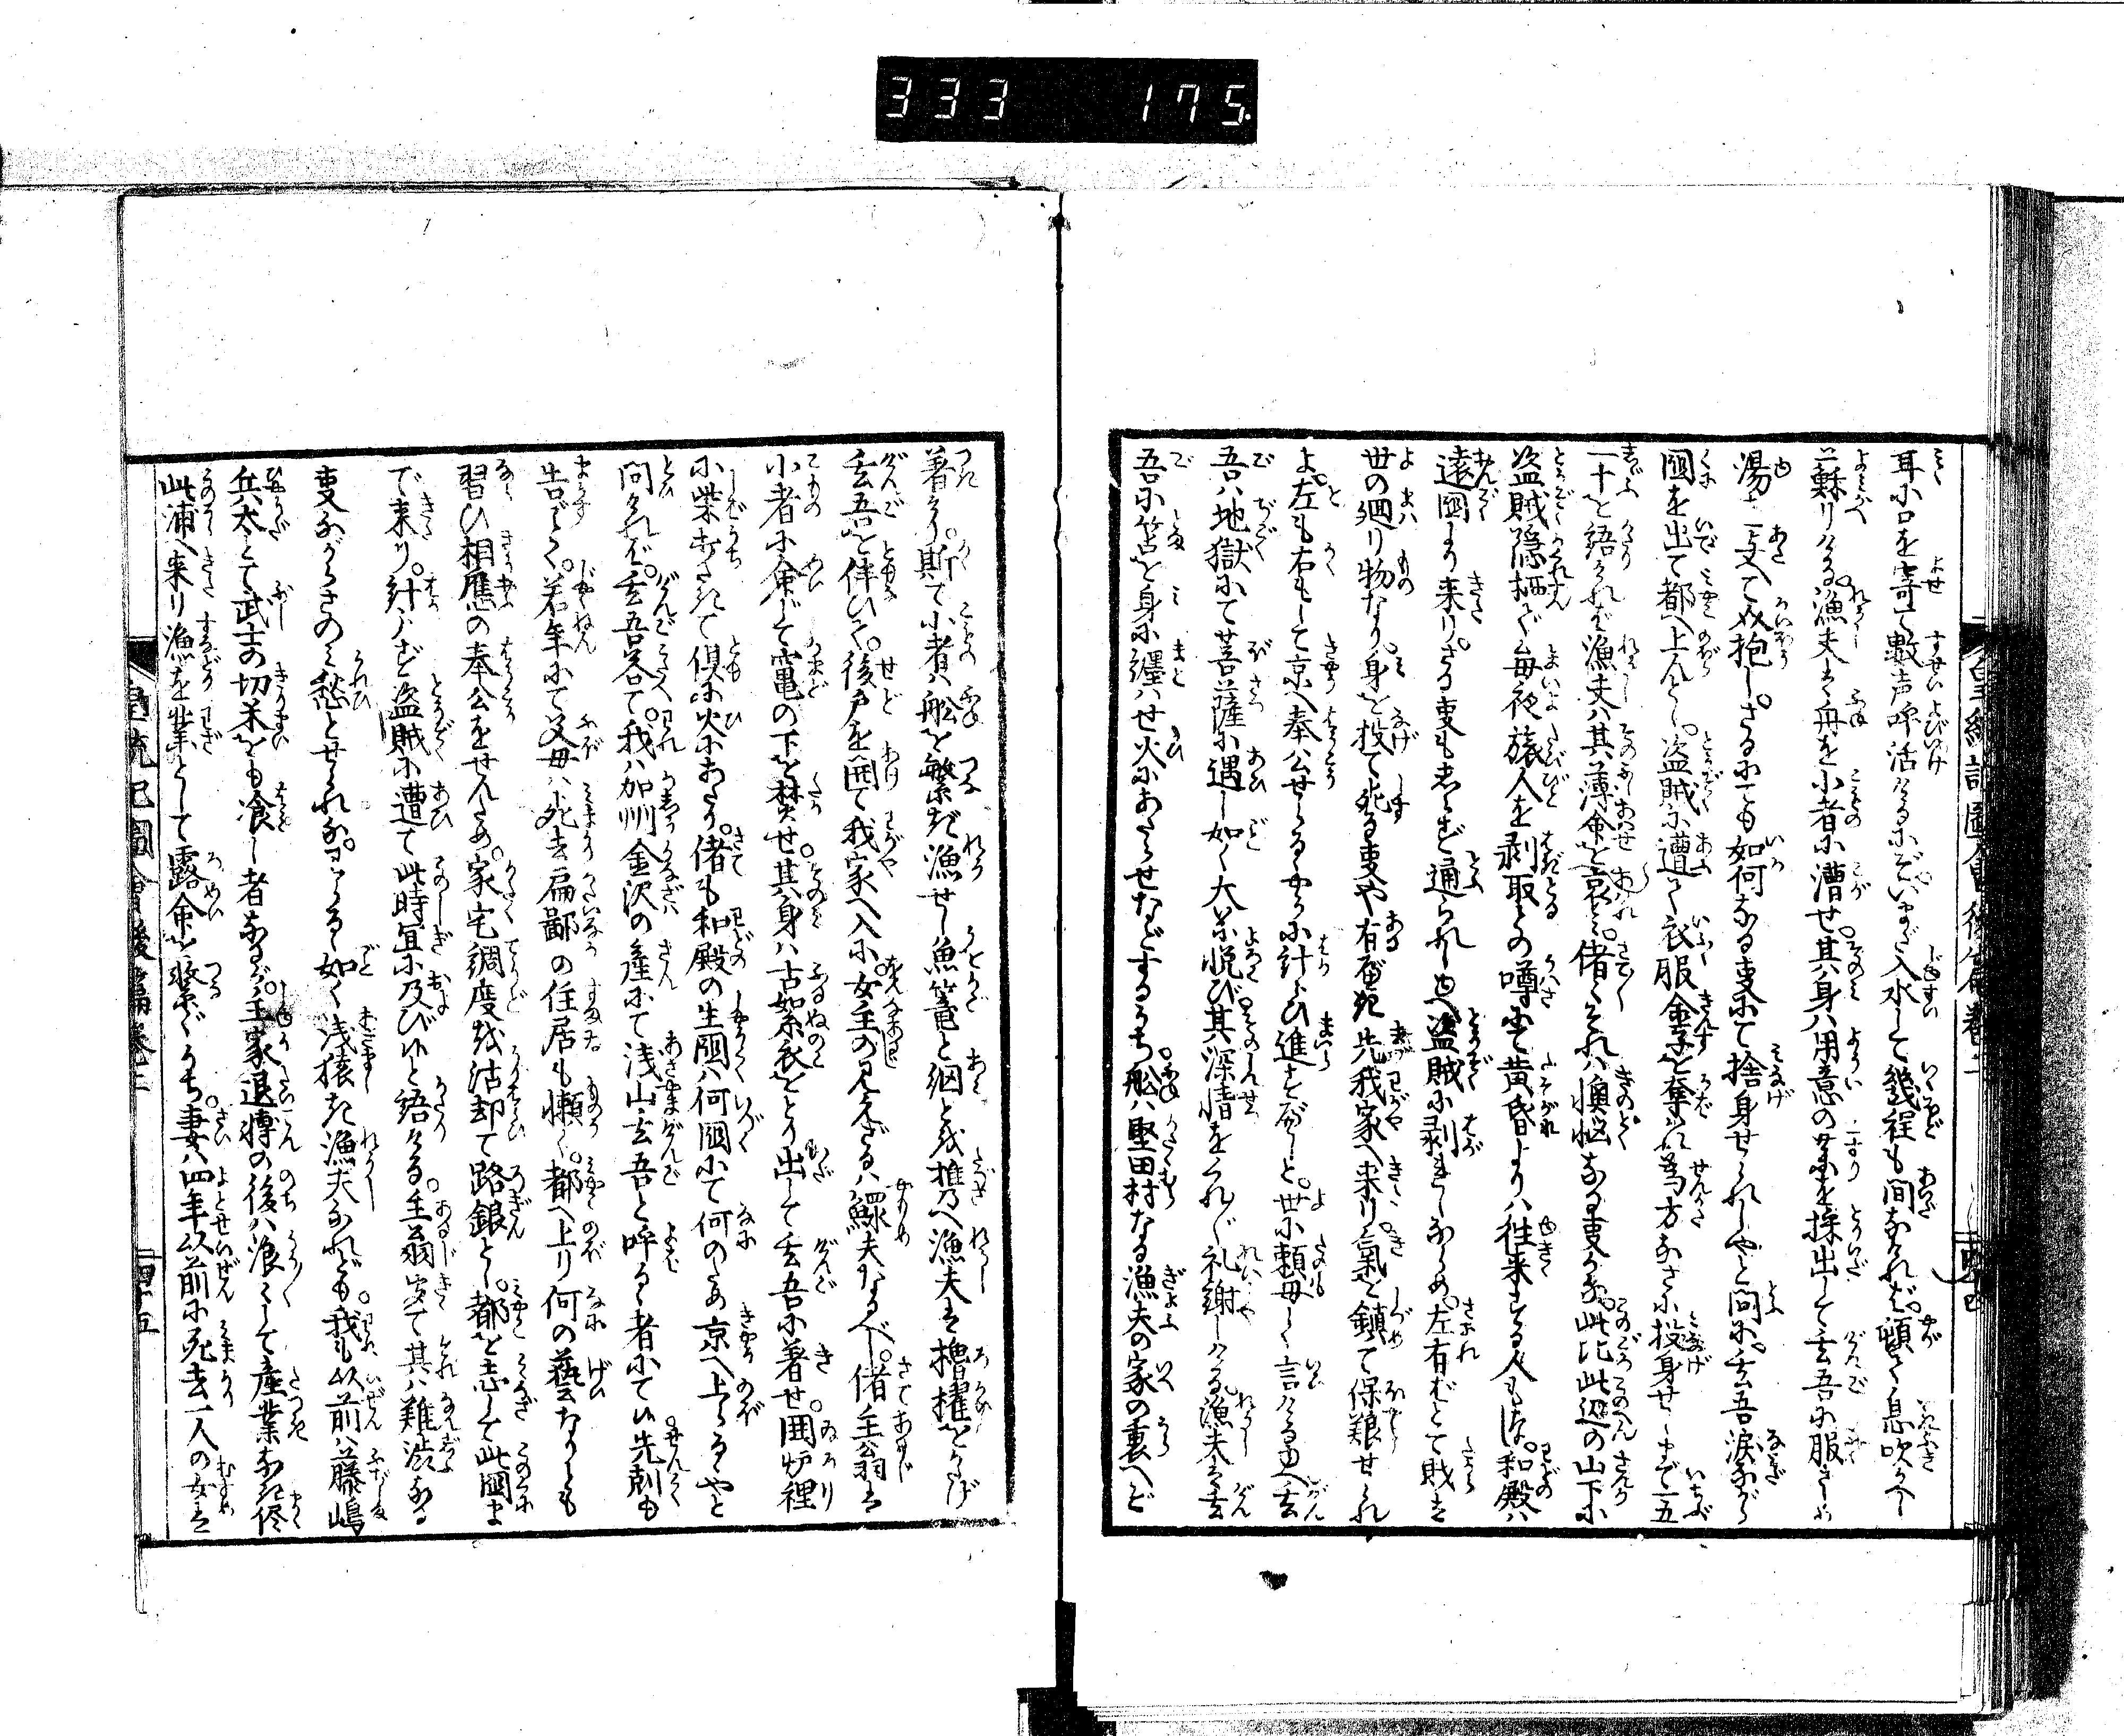 333 175.
耳に口を寄て数声呼活けるにぞいまだ入水して幾程も間なければ頓て息吹かへし
蘇りける漁夫は舟を小者に漕せ其身は用意の薬を採出して玄吾に服さしめ
湯を与へて介抱しさるにても如何なる事にて捨身せられしやと問に玄吾涙ながら
國を出て都へ上らんとし盗賊に遭て衣服金子を奪はれ為方なさに投身せしまで一五
一十を語りければ漁夫は其薄命を哀み偖々それは懊悩なる事かな此比此辺の山下に
盗賊隠栖て毎夜旅人を剥取との噂にて黄昏よりは往来する人もなし和殿は
遠國より来りさる事もしらず通られし也盗賊に剥れしならめ左有ばとて財は
世の廻り物なり身を投て死る事や有べき先我家へ来り氣を鎮て保艱せられ
よ左も右もして京へ奉公せらるゝやうに計らひ進ずべしと世に頼母しく言ける由へ玄
吾は地獄にて菩薩に遇し如く大に悦び其深情をくれぐれ礼謝しける漁夫は玄
吾に苫を身に纏はせ火にあたらせなどするうち船は堅田村なる漁夫の家の裏へぞ
著けり斯て小者は舩を繋ぎ漁せし魚篭と網とを推乃へ漁夫は櫓擢をかたげ
玄吾を伴ひて後戸を開て我家へ入に女主の見えざるは鰥夫なるべし偖主翁は
小者に命じて竃の下を焚せ其身は古絮衣をとり出して玄吾に著せ囲炉裡
に柴打さして倶に火にあたり偖も和殿の生國は何國にて何のため京へ上らるゝやと
問ければ玄吾答て我は加州金沢の産にて浅山玄吾と呼るゝ者にてい先刻も
告ごとく若年にて父母は死去扁鄙の住居も懶く都へ上り何の藝なりとも
習ひ相應の奉公をせんため家宅調度を沽却て路銀とし都を志して此國ま
で来り計らず盗賊に遭て此時宜に及びいと語りける主翁聞て其は難渋なる
事ながらさのみ愁とせられなわるゝ如く浅猿き漁夫なれども我も以前は藤嶋
兵太とて武士の切米をも喰し者なるが主家退転の後は浪々として産業なき侭
此浦へ来り漁を業として露命を繋ぐうち妻は四年以前に死去一人の女は
皇統記圖會後編巻二 四十五